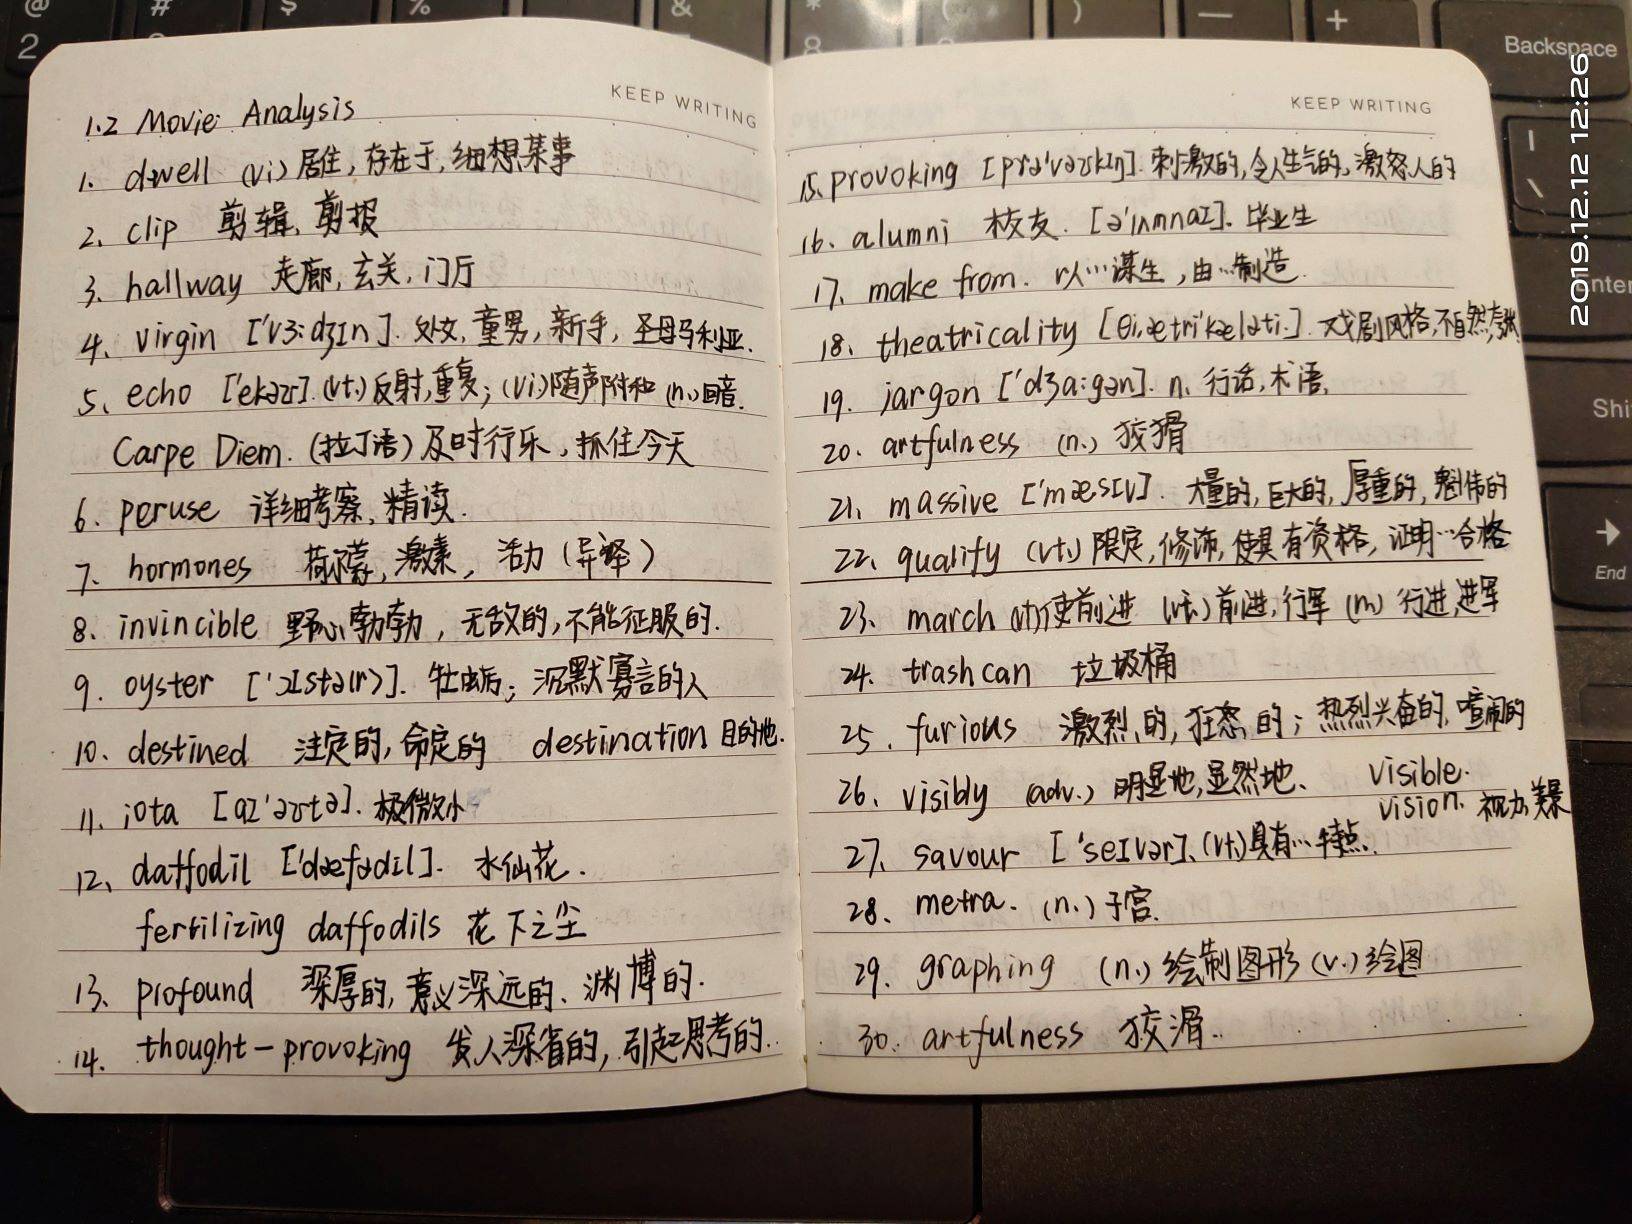 KEEP WRITING
1.2 Movie Analysis
1. dwell (vi) 居住, 存在于, 细想某事
2. clip 剪辑, 剪报
3. hallway 走廊, 玄关, 门厅
4. virgin ['vɜ:dʒɪn]. 处女, 童男, 新手, 圣母马利亚.
5. echo ['ekəʊ]. (vt.) 反射, 重复; (vi) 随声附和 (n.) 回音.
Carpe Diem. (拉丁语) 及时行乐, 抓住今天
6. peruse 详细考察, 精读.
7. hormones 荷尔蒙, 激素, 活力 (异译)
8. invincible 野心勃勃, 无敌的, 不能征服的.
9. oyster ['ɔɪstə(r)]. 牡蛎; 沉默寡言的人
10. destined 注定的, 命定的 destination 目的地.
11. iota [aɪ'əʊtə]. 极微小
12. daffodil ['dæfədil]. 水仙花.
fertilizing daffodils 花下之尘
13. profound 深厚的, 意义深远的、渊博的.
14. thought-provoking 发人深省的, 引起思考的.
KEEP WRITING
15. provoking [prə'vəʊkɪŋ]. 刺激的, 令人生气的, 激怒人的
16. alumni 校友. [ə'lʌmnaɪ]. 毕业生
17. make from. 以…谋生, 由…制造.
18. theatricality [θi,ætri'kæləti.]. 戏剧风格, 不自然, 夸张
19. jargon ['dʒa:gən]. n. 行话, 术语.
20. artfulness (n.) 狡猾
21. massive ['mæsɪv]. 大量的, 巨大的, 厚重的, 魁伟的
22. qualify (vt.) 限定, 修饰, 使具有资格, 证明…合格
23. march (vt) 使前进 (vi.) 前进, 行军 (n.) 行进, 进军
24. trash can 垃圾桶
25. furious 激烈的, 狂怒的; 热烈兴奋的, 喧闹的
26. visibly (adv.) 明显地, 显然地、 visible.
vision. 视力, 美景
27. savour ['seɪvər]. (vt.) 具有…特点.
28. metra. (n.) 子宫.
29. graphing (n.) 绘制图形 (v.) 绘图
30. artfulness 狡滑.
2019.12.12 12:26
@
2
#
$
%
&
*
8
(
)
—
+
Backspace
|
\
Enter
Shi
End